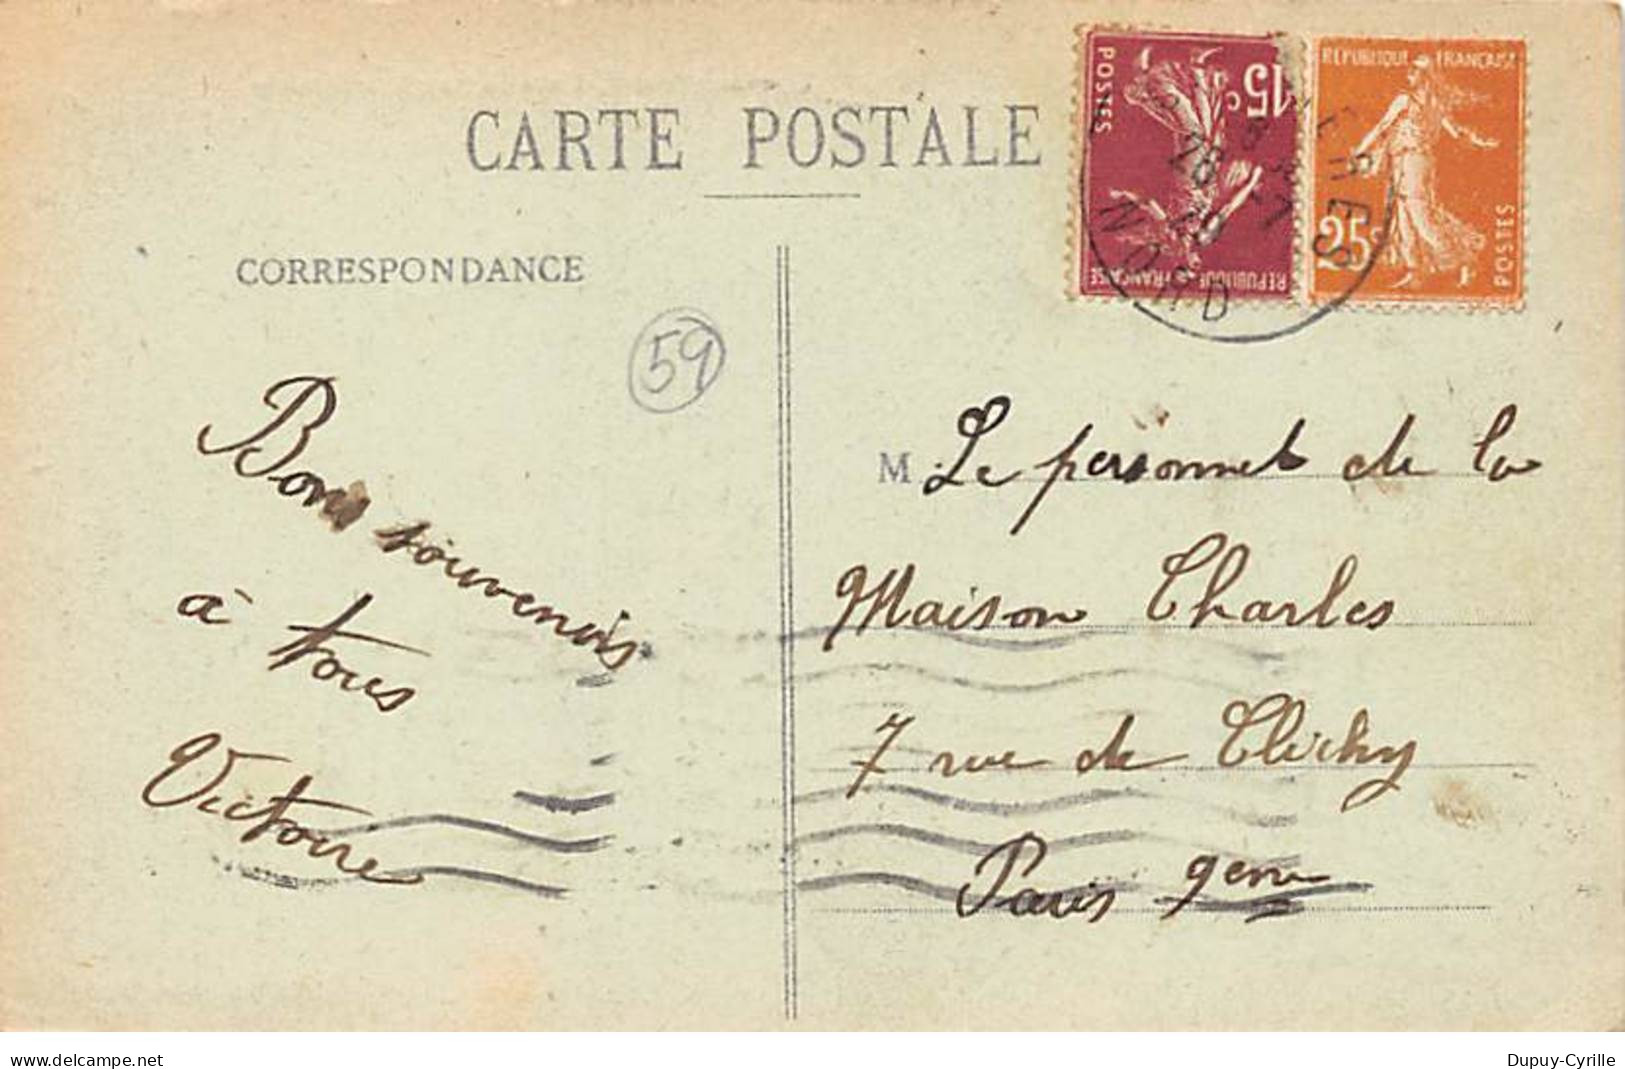 CARTE POSTALE
CORRESPONDANCE
59
Bons souvenirs
à tous
Victoire
POSTES
15c
REPUBLIQUE FRANÇAISE
REPUBLIQUE FRANÇAISE
25c
POSTES
NORD
M. Le personnel de la
Maison Charles
7 rue de Clichy
Paris 9eme
www.delcampe.net
Dupuy-Cyrille